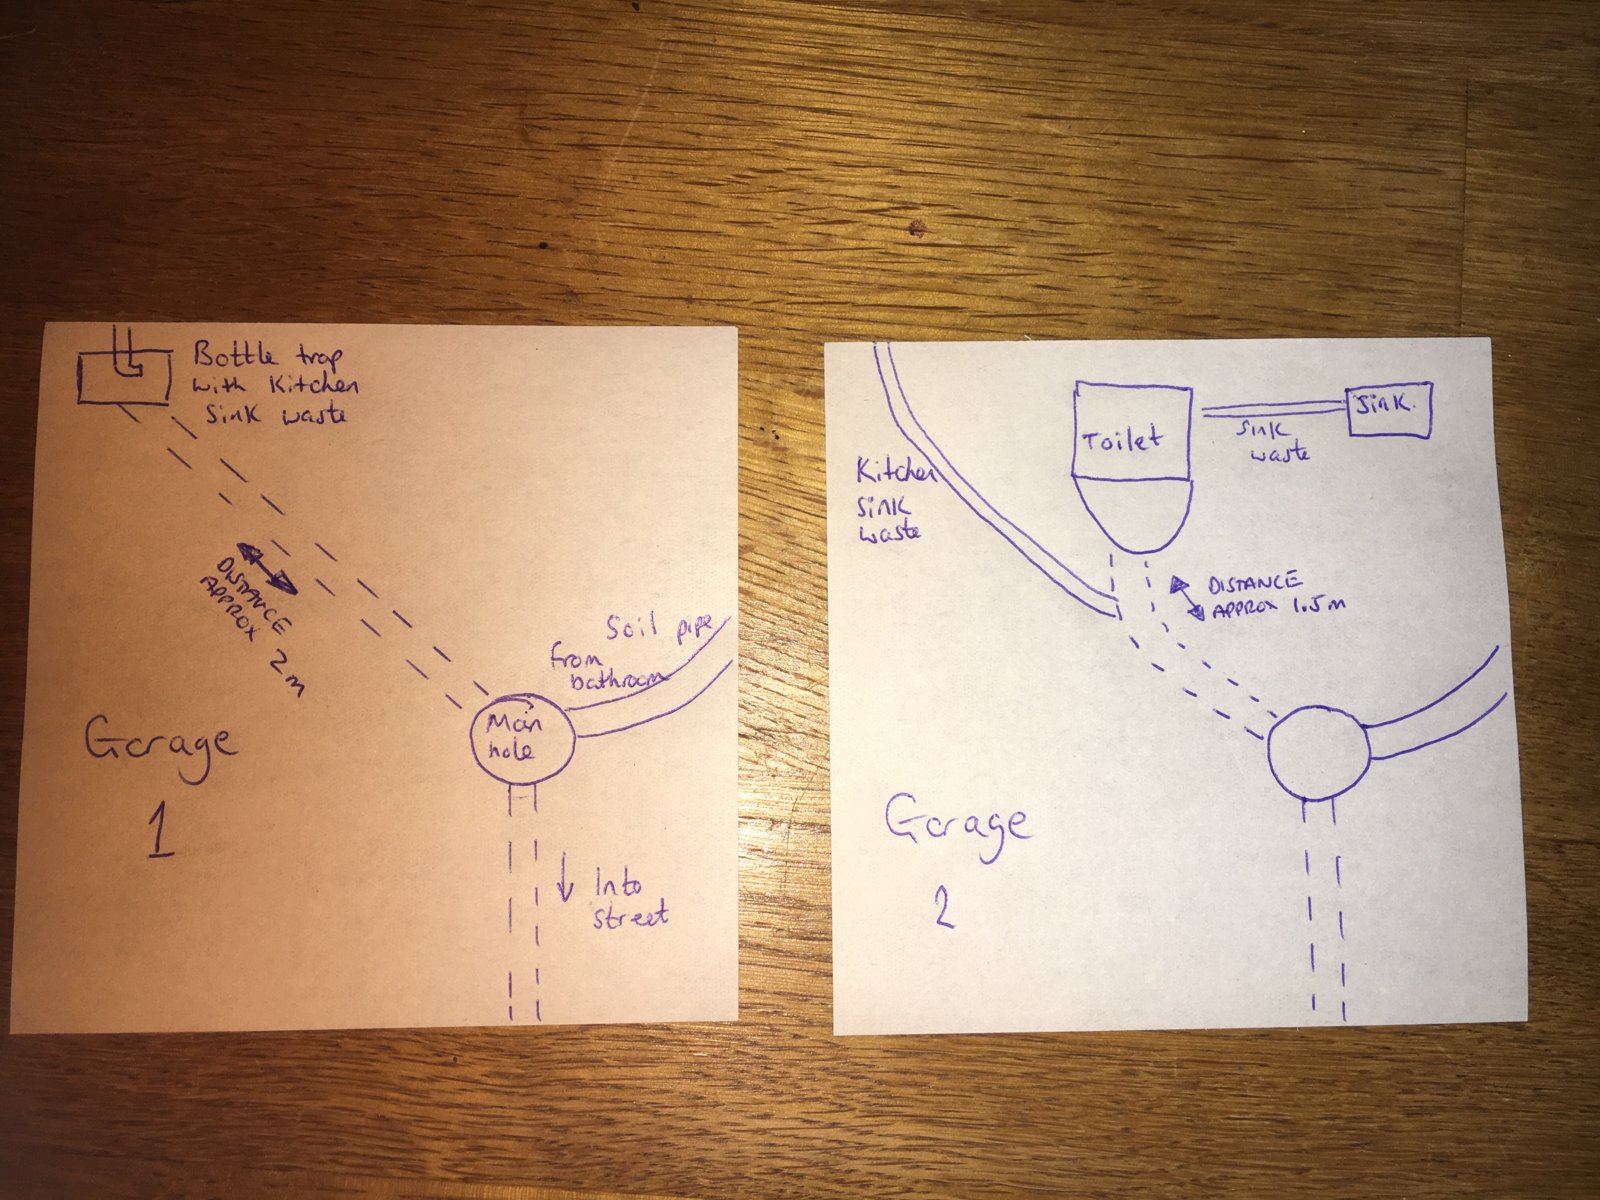 Bottle trap
with Kitchen
sink waste
DISTANCE
APPROX 2m
Soil pipe
from
bathroom
Main
hole
Garage
1
Into
street
Toilet
Sink
sink
waste
Kitchen
sink
waste
DISTANCE
APPROX 1.5m
Garage
2